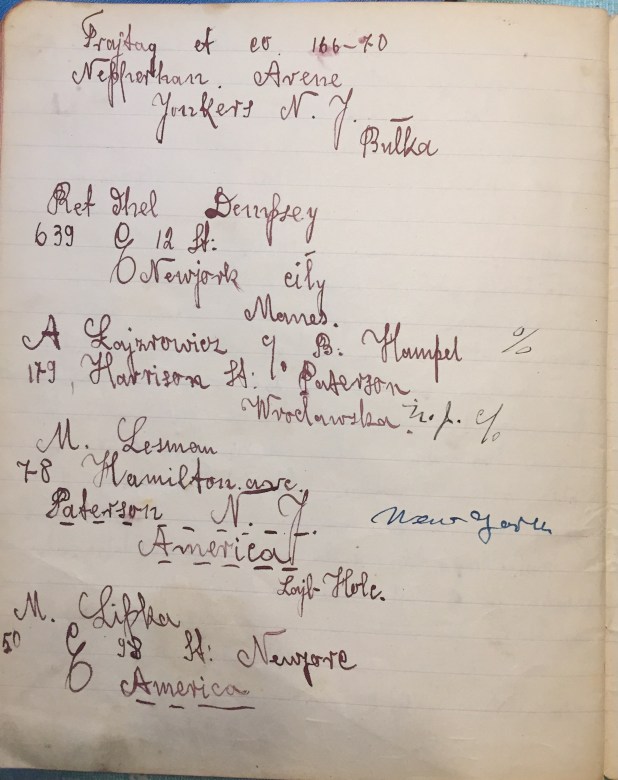 Frajtag et co. 166-70
Nepperhan. Avene
Jonkers N. J.
Bułka
Ret Thel Dempsey
639 E 12 St:
E Newjork city
Manes.
A Łajzrowicz % B. Hampel %
179, Harrison St: Paterson
Wrocławska ż.p. %
M. Lesman
78 Hamilton ave.
Paterson N. J.
New York
America
Lajb-Holc.
M. Lifka
50 E 98 St: Newjorc
America